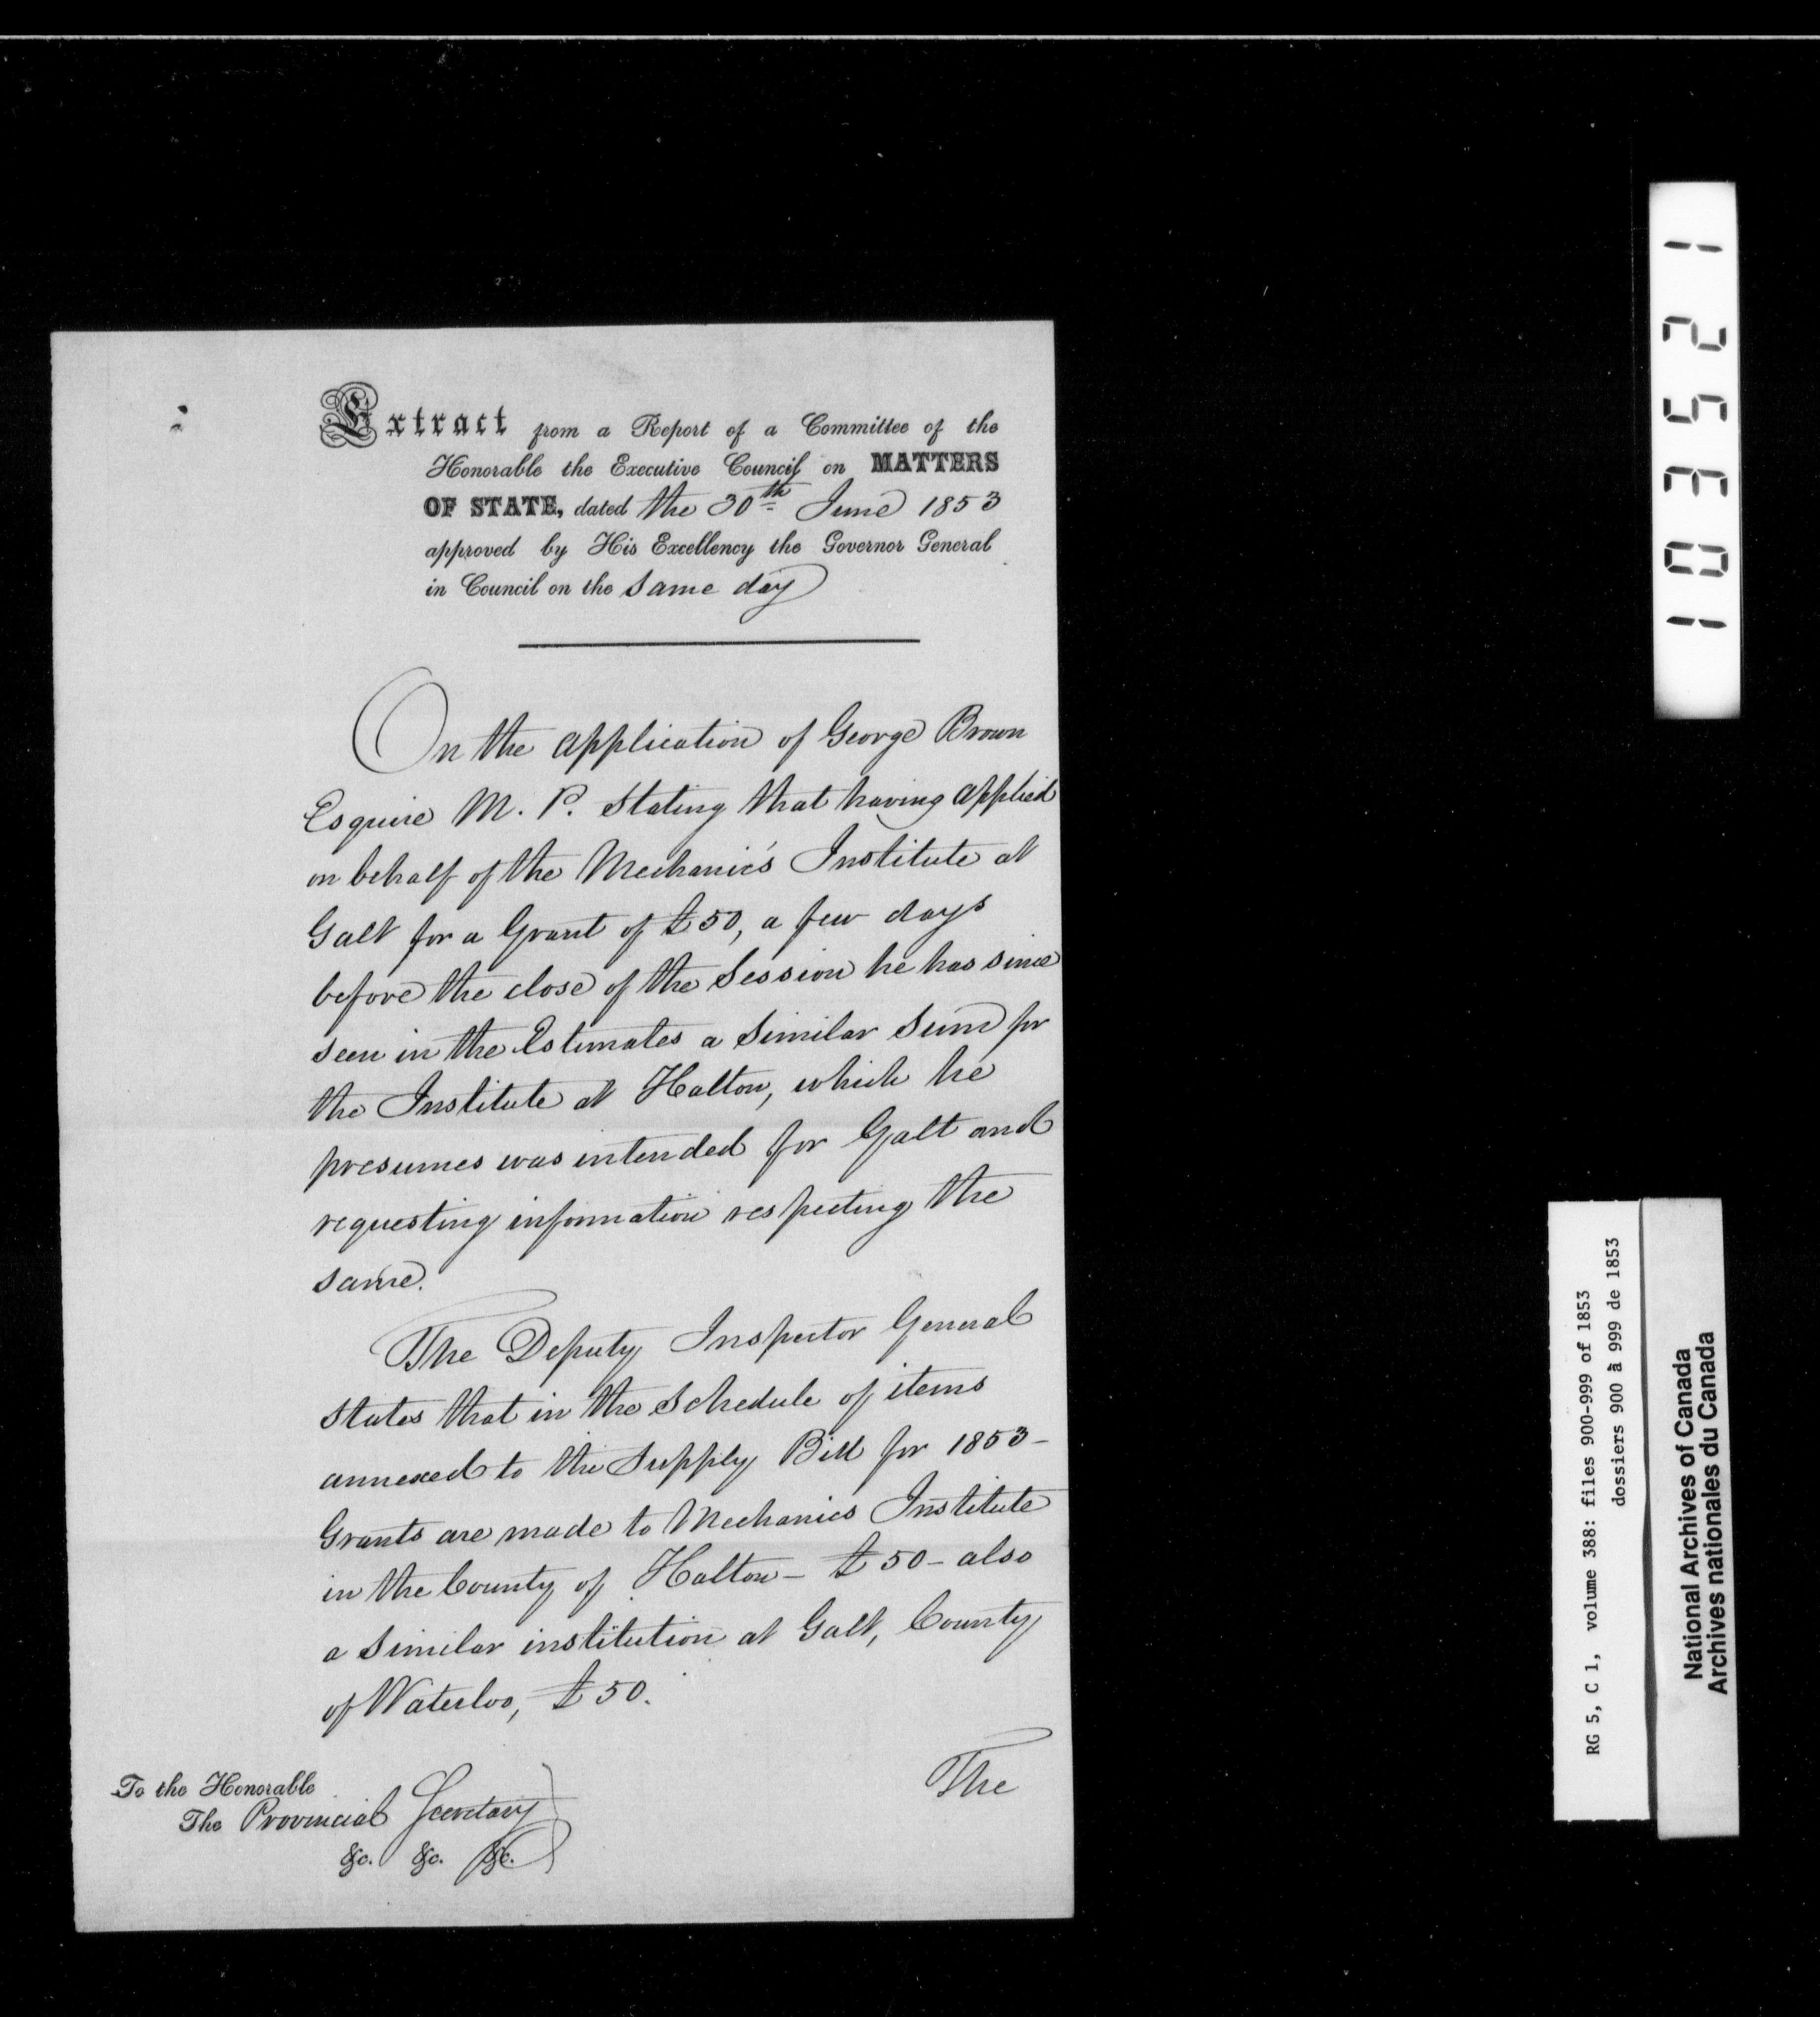 Extract from a Report of a Committee of the
Honorable the Executive Council on MATTERS
OF STATE, dated the 30th June 1853
approved by His Excellency the Governor General
in Council on the same day
On the application of George Brown
Esquire M. P. stating that having applied
on behalf of the Mechanic's Institute at
Galt for a Grant of £50, a few days
before the close of the Session he has since
seen in the Estimates a similar sum for
the Institute at Halton, which he
presumes was intended for Galt and
requesting information respecting the
same.
The Deputy Inspector General
states that in the Schedule of items
annexed to the Supply Bill for 1853-
Grants are made to Mechanics Institute
in the County of Halton - £50 - also
a similar institution at Galt, County
of Waterloo, £50.
The
To the Honorable
The Provincial Secretary
&c. &c. &c.
103521
RG 5, C 1, volume 388: files 900-999 of 1853
dossiers 900 à 999 de 1853
National Archives of Canada
Archives nationales du Canada